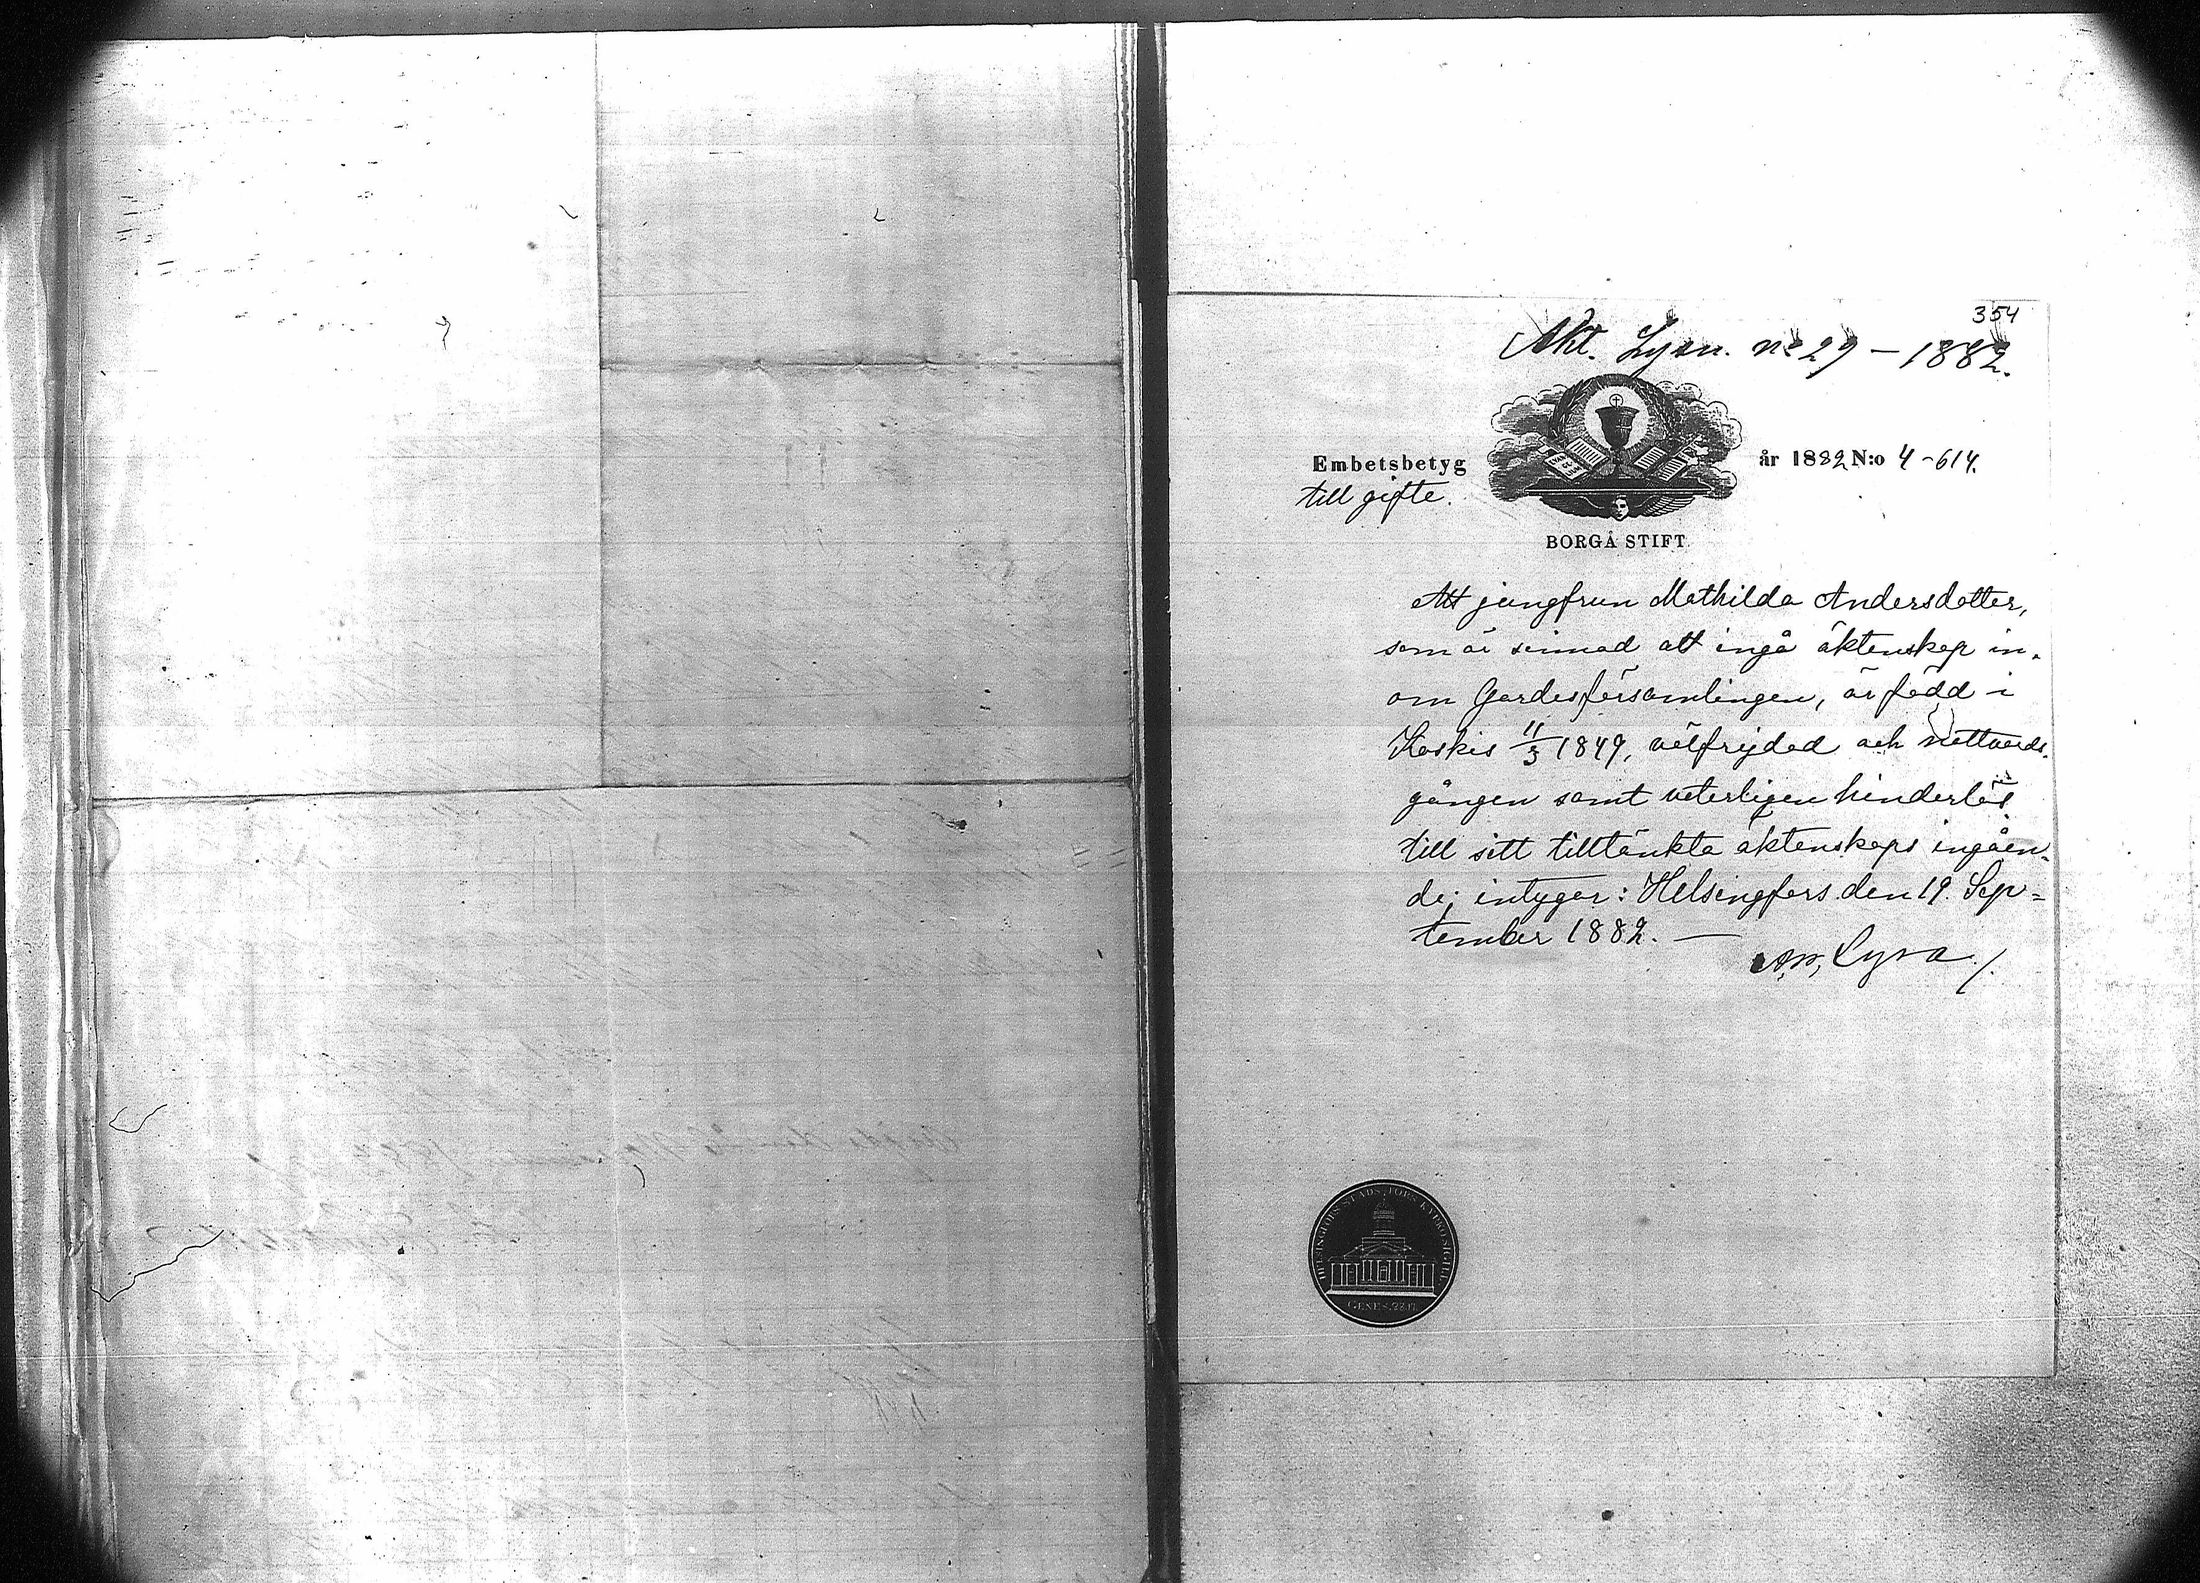 354
Akt. Lysn. no 29 – 1882.
Embetsbetyg år 1882 N:o 4–614.
till gifte.
BORGÅ STIFT
Att jungfrun Mathilda Andersdotter,
som är sinnad att ingå äktenskap in-
om Gardesförsamlingen, är född i
Koskis 11/3 1849, välfrejdad och nattvards-
gången samt veterligen hinderlös
till sitt tilltänkta äktenskaps ingåen-
de; intygar: Helsingfors den 19. Sep=
tember 1882. —
Lyra
HELSINGFORS STADS FÖRS. KYRKOSIGILL
GENES. 28.17